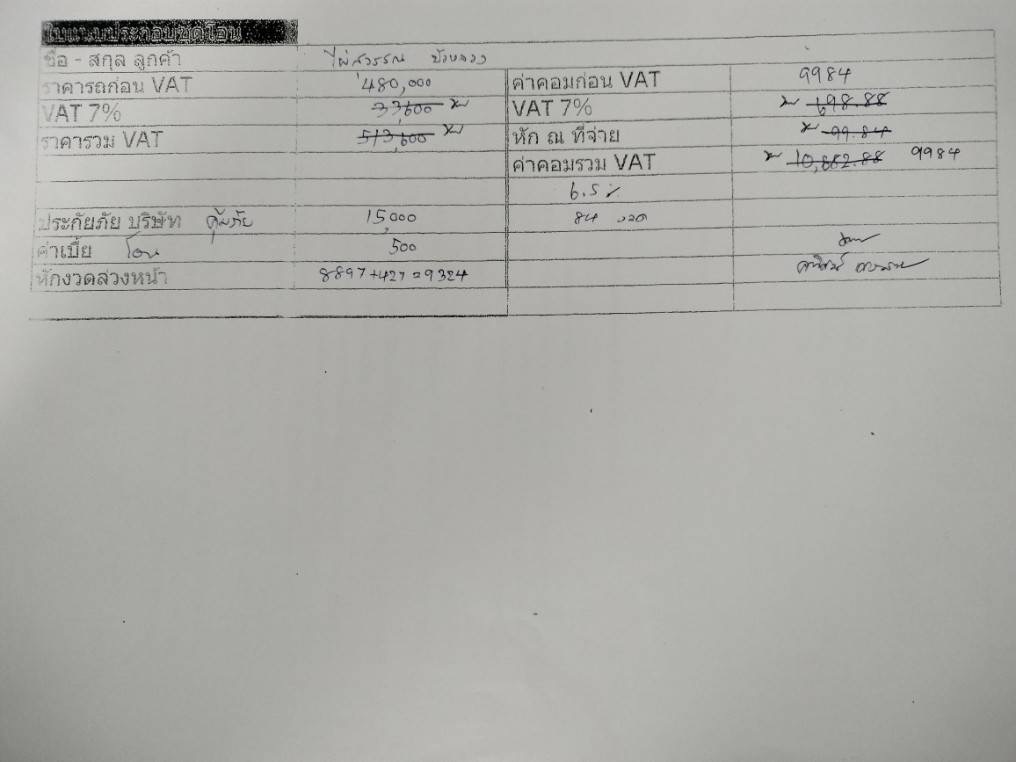 ใบแนบประกอบชุดโอน
ชื่อ - สกุล ลูกค้า ไผ่สวรรณ
ราคารถก่อน VAT 480,000 ค่าคอมก่อน VAT 9984
VAT 7% 33,600 VAT 7% 698.88
ราคารวม VAT 513,600 หัก ณ ที่จ่าย 99.84
ค่าคอมรวม VAT 10,682.88 9984
6.5%
ประกันภัย บริษัท คุ้มภัย 15,000 84 งวด
ค่าเบี้ย โอน 500
หักงวดล่วงหน้า 8897+427=9324